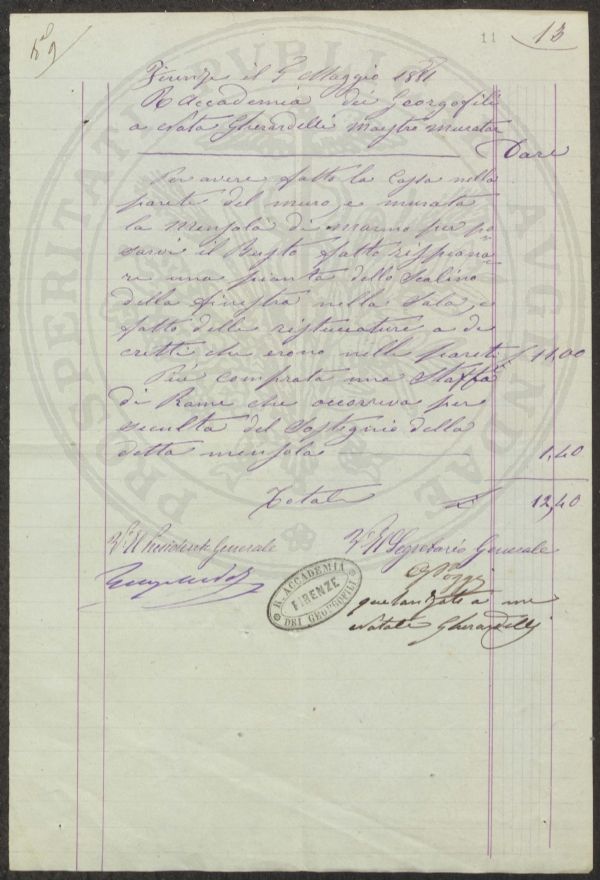 11 13
Firenze il 5 Maggio 1881
R Accademia dei Georgofili
a Nata Gherardelli Maestro Murator
Dare
Per avere fatto la Cassa nella
parete del muro, e murata
la Mensola di marmo per po-
sarvi il Busto fatto rispiana-
re una pianta dello Scalino
della finestra nella Sala, e
fatto delle ristuccature a di
critti che erono nelle Pareti £ 11.00
Piú comprata una Staffa
di Rame che occorreva per
seculta del Sostegnio della
detta mensola 1,40
Totale £ 12,40
Vº Il Presidente Generale Vº Il Segretario Generale
R. ACCADEMIA
FIRENZE
DEI GEORGOFILI
quetanzato a me
Natale Gherardelli
PROSPERITATI PUBLICAE AUGENDAE